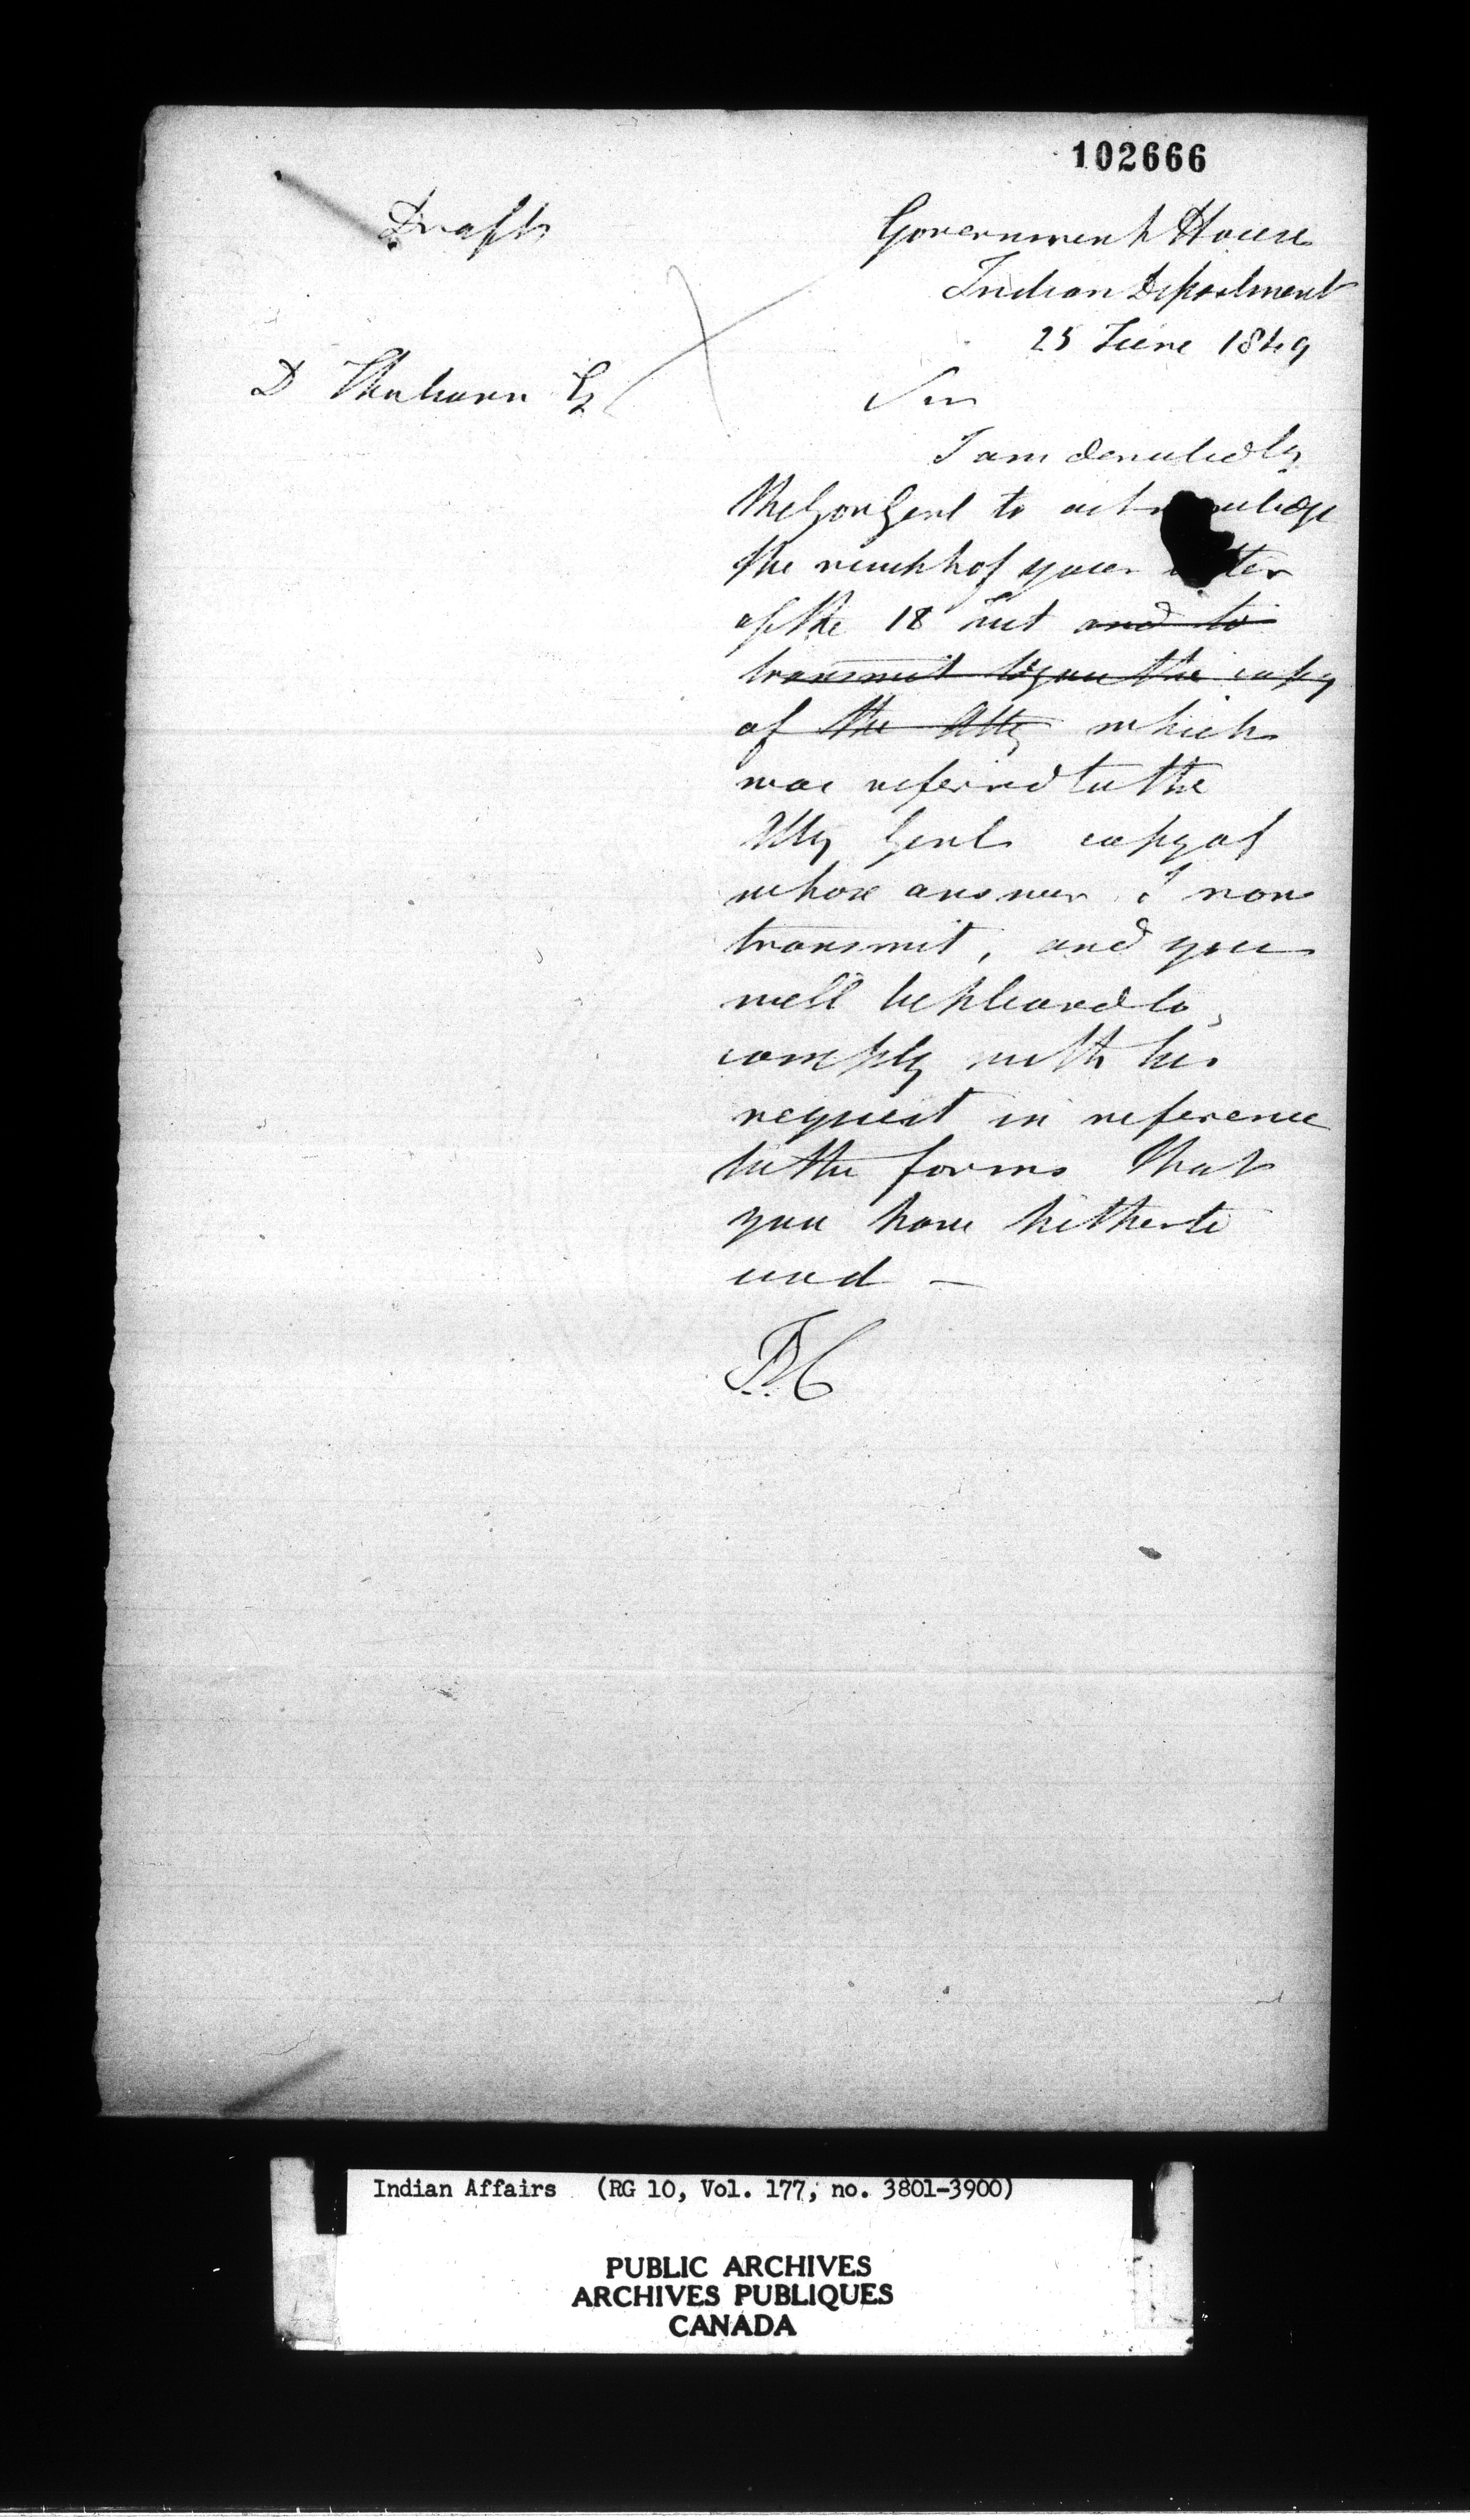 102666
Draft
Government House
Indian Department
25 June 1849
D Thorburn Eq
Sir
I am directed by
the Gov Genl to acknowledge
the receipt of your letter
of the 18 inst and to
transmit to you the copy
of the Atty which
was referred to the
Atty Genl copy of
whose answer I now
transmit, and you
will be pleased to
comply with his
request in reference
to the forms that
you have hitherto
used —
Indian Affairs (RG 10, Vol. 177, no. 3801-3900)
PUBLIC ARCHIVES
ARCHIVES PUBLIQUES
CANADA